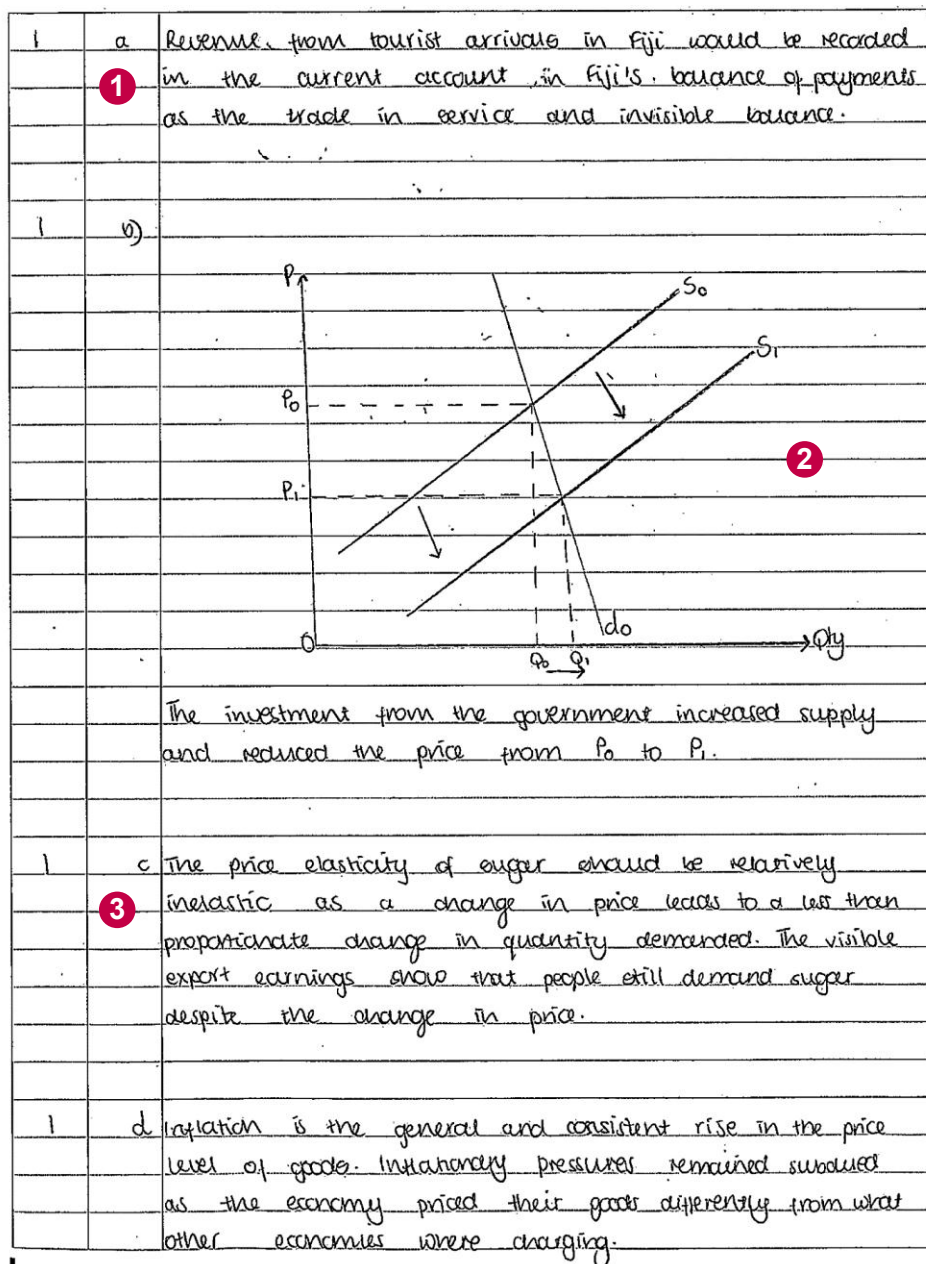 1 a Revenue from tourist arrivals in Fiji would be recorded
1 in the current account in Fiji's balance of payments
as the trade in service and invisible balance.
1 b)
P
S0
S1
P0
2
P1
0
d0
Qty
Q0 Q1
The investment from the government increased supply
and reduced the price from P0 to P1.
1 c The price elasticity of sugar should be relatively
3 inelastic as a change in price leads to a less than
proportionate change in quantity demanded. The visible
export earnings show that people still demand sugar
despite the change in price.
1 d Inflation is the general and consistent rise in the price
level of goods. Inflationary pressures remained subdued
as the economy priced their goods differently from what
other economies where charging.